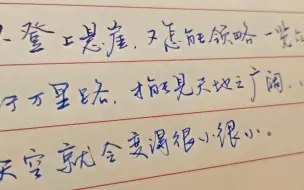 登上悬崖,又怎能领略一览
万里路,才能见天地之广阔,
天空就会变得很小很小。